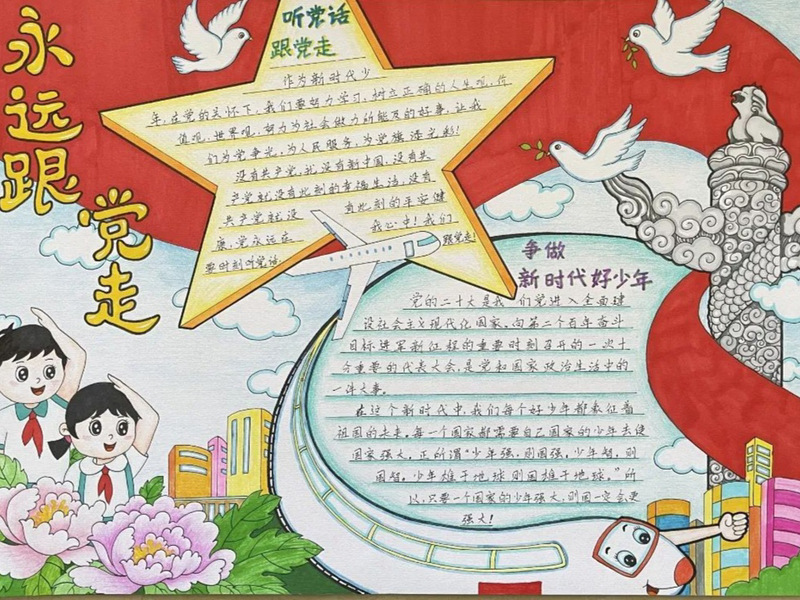 永远跟
党走
听党话
跟党走
作为新时代少
年,在党的关怀下,我们要努力学习,树立正确的人生观,价
值观,世界观,努力为社会做力所能及的好事,让我
们为党争光,为人民服务,为党旗添光彩!
没有共产党,就没有新中国,没有共
产党就没有此刻的幸福生活,没有
共产党就没 有此刻的平安健
康,党永远在 我心中!我们
要时刻听党话 跟党走!
争做
新时代好少年
党的二十大是我 们党进入全面建
设社会主义现代化国家、向第二个百年奋斗
目标进军新征程的重要时刻召开的一次十
分重要的代表大会,是党和国家政治生活中的
一件大事。
在这个新时代中,我们每个好少年都象征着
祖国的未来,每一个国家都需要自己国家的少年去使
国家强大,正所谓“少年强,则国强,少年智,则
国智,少年雄于地球,则国雄于地球。”所
以,只要一个国家的少年强大,则国一定会更
强大!